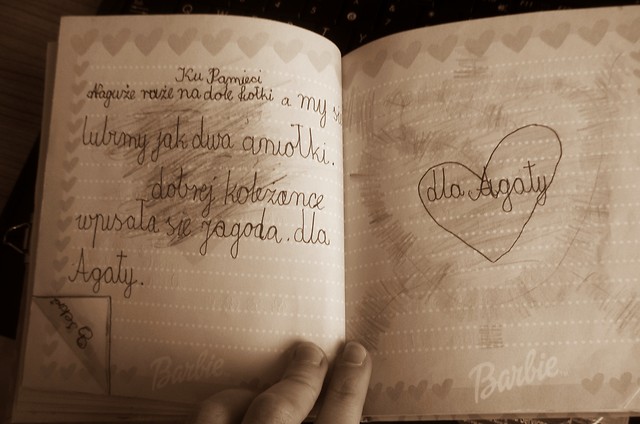 Ku Pamięci
Na guże raże na dole kołki a my się
lubimy jak dwa aniołki.
dobrej koleżance
wpisała się jagoda. dla
Agaty.
Barbie
dla Agaty
Barbie